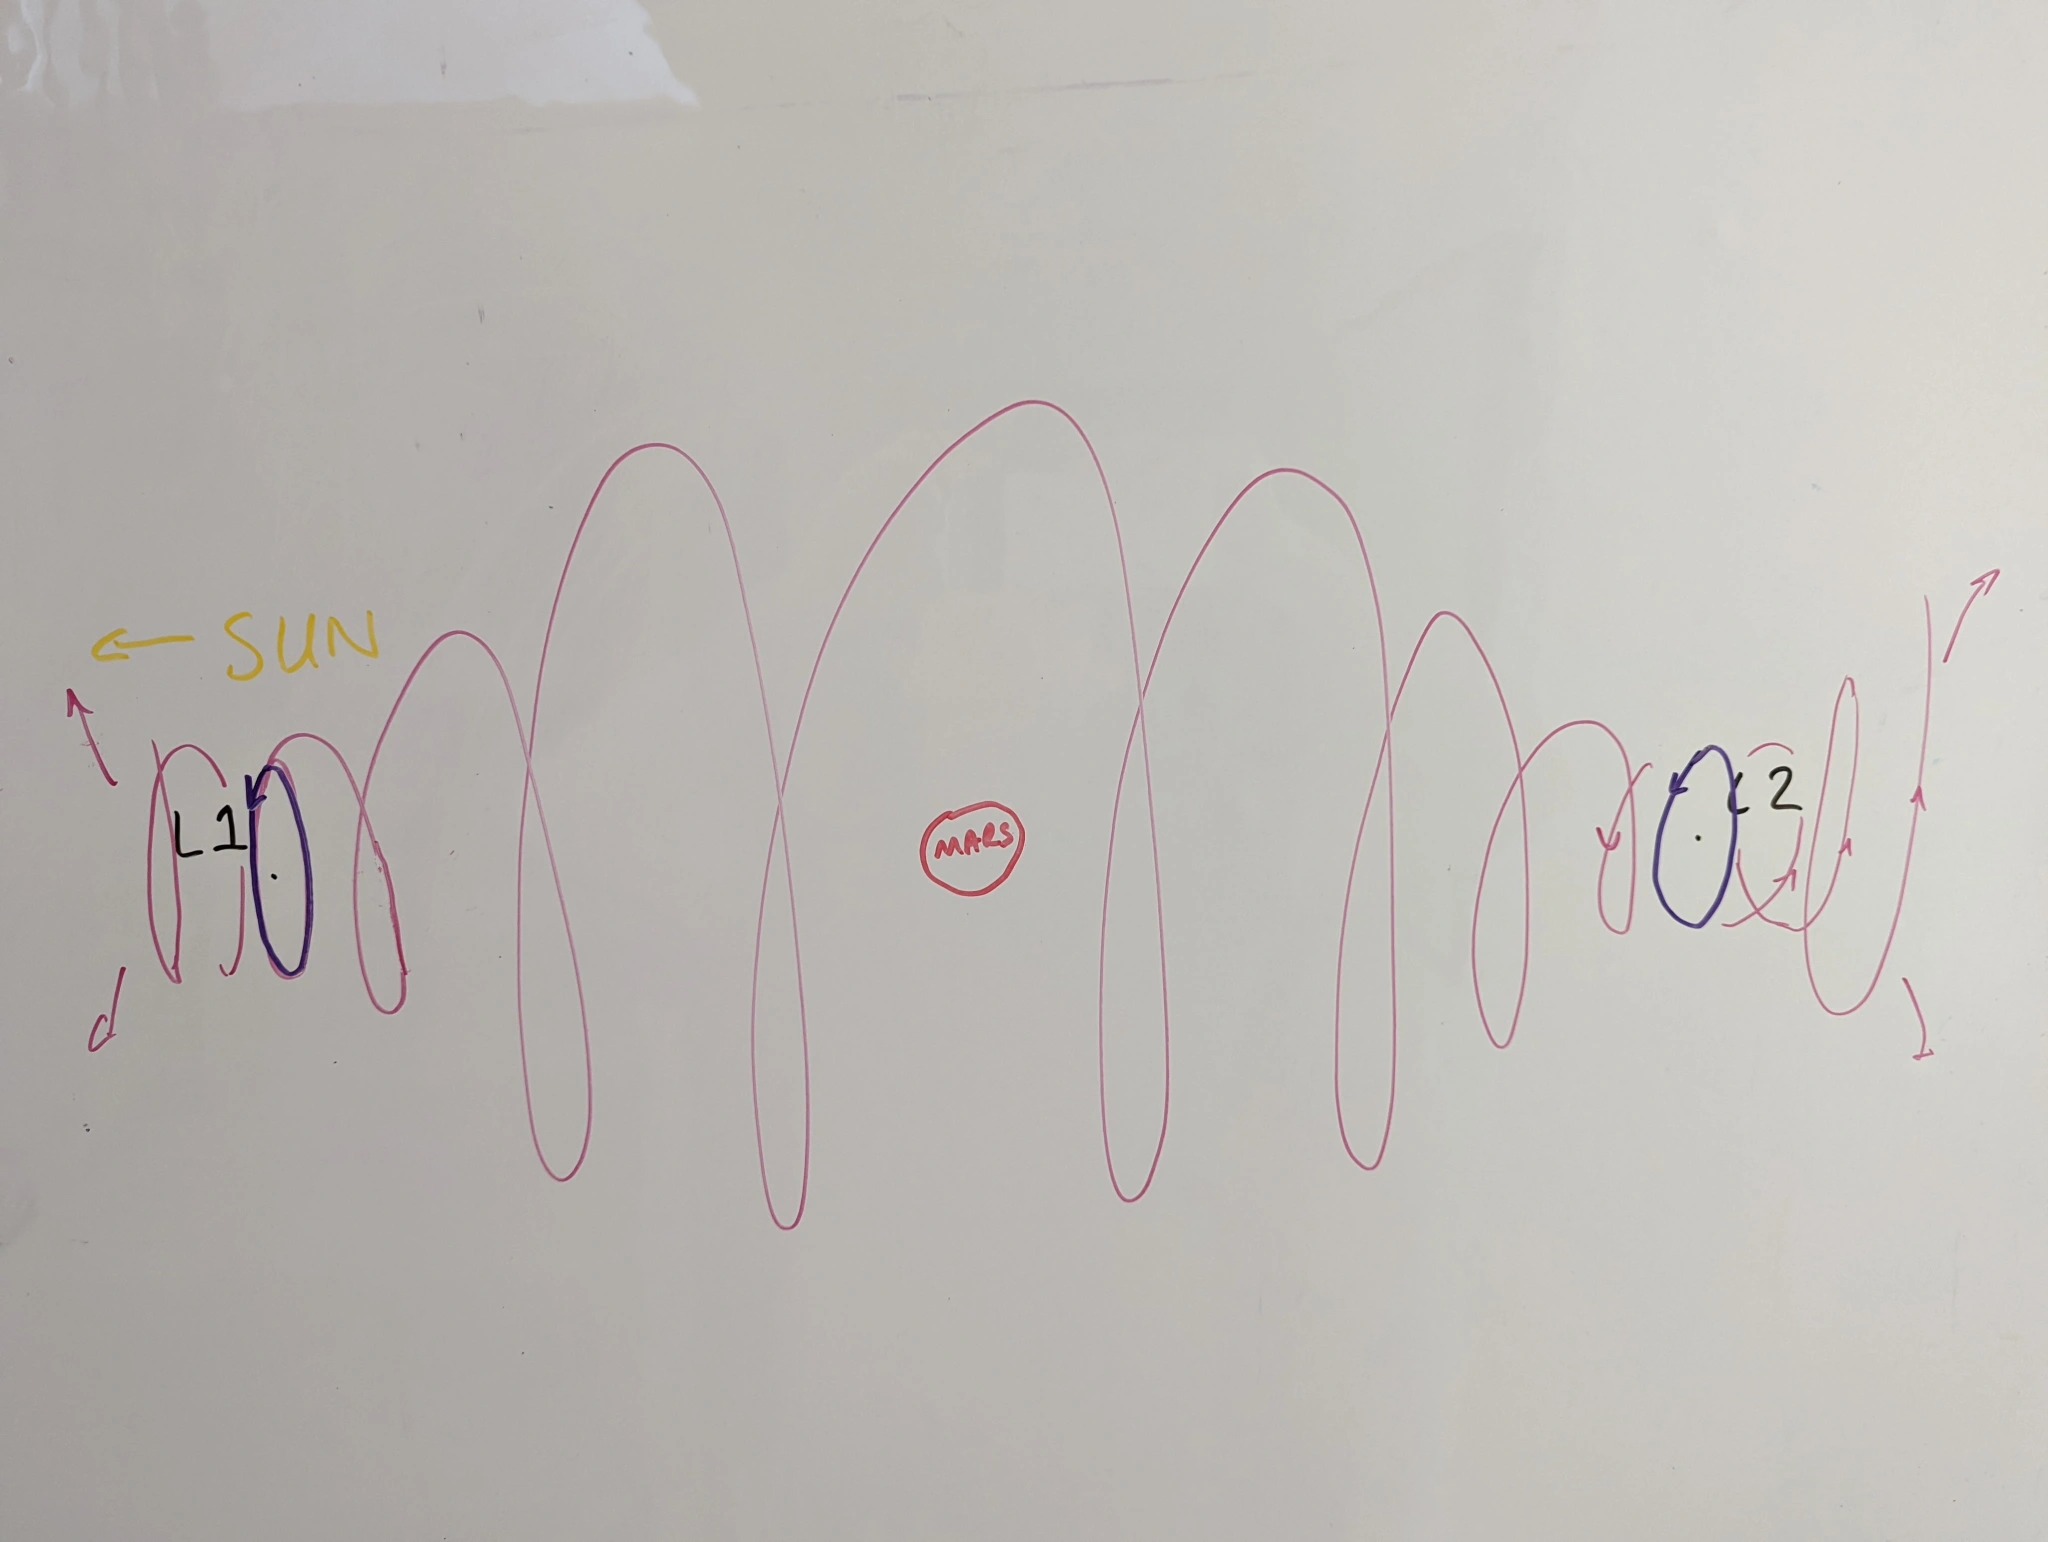 ← SUN
L1
MARS
L2